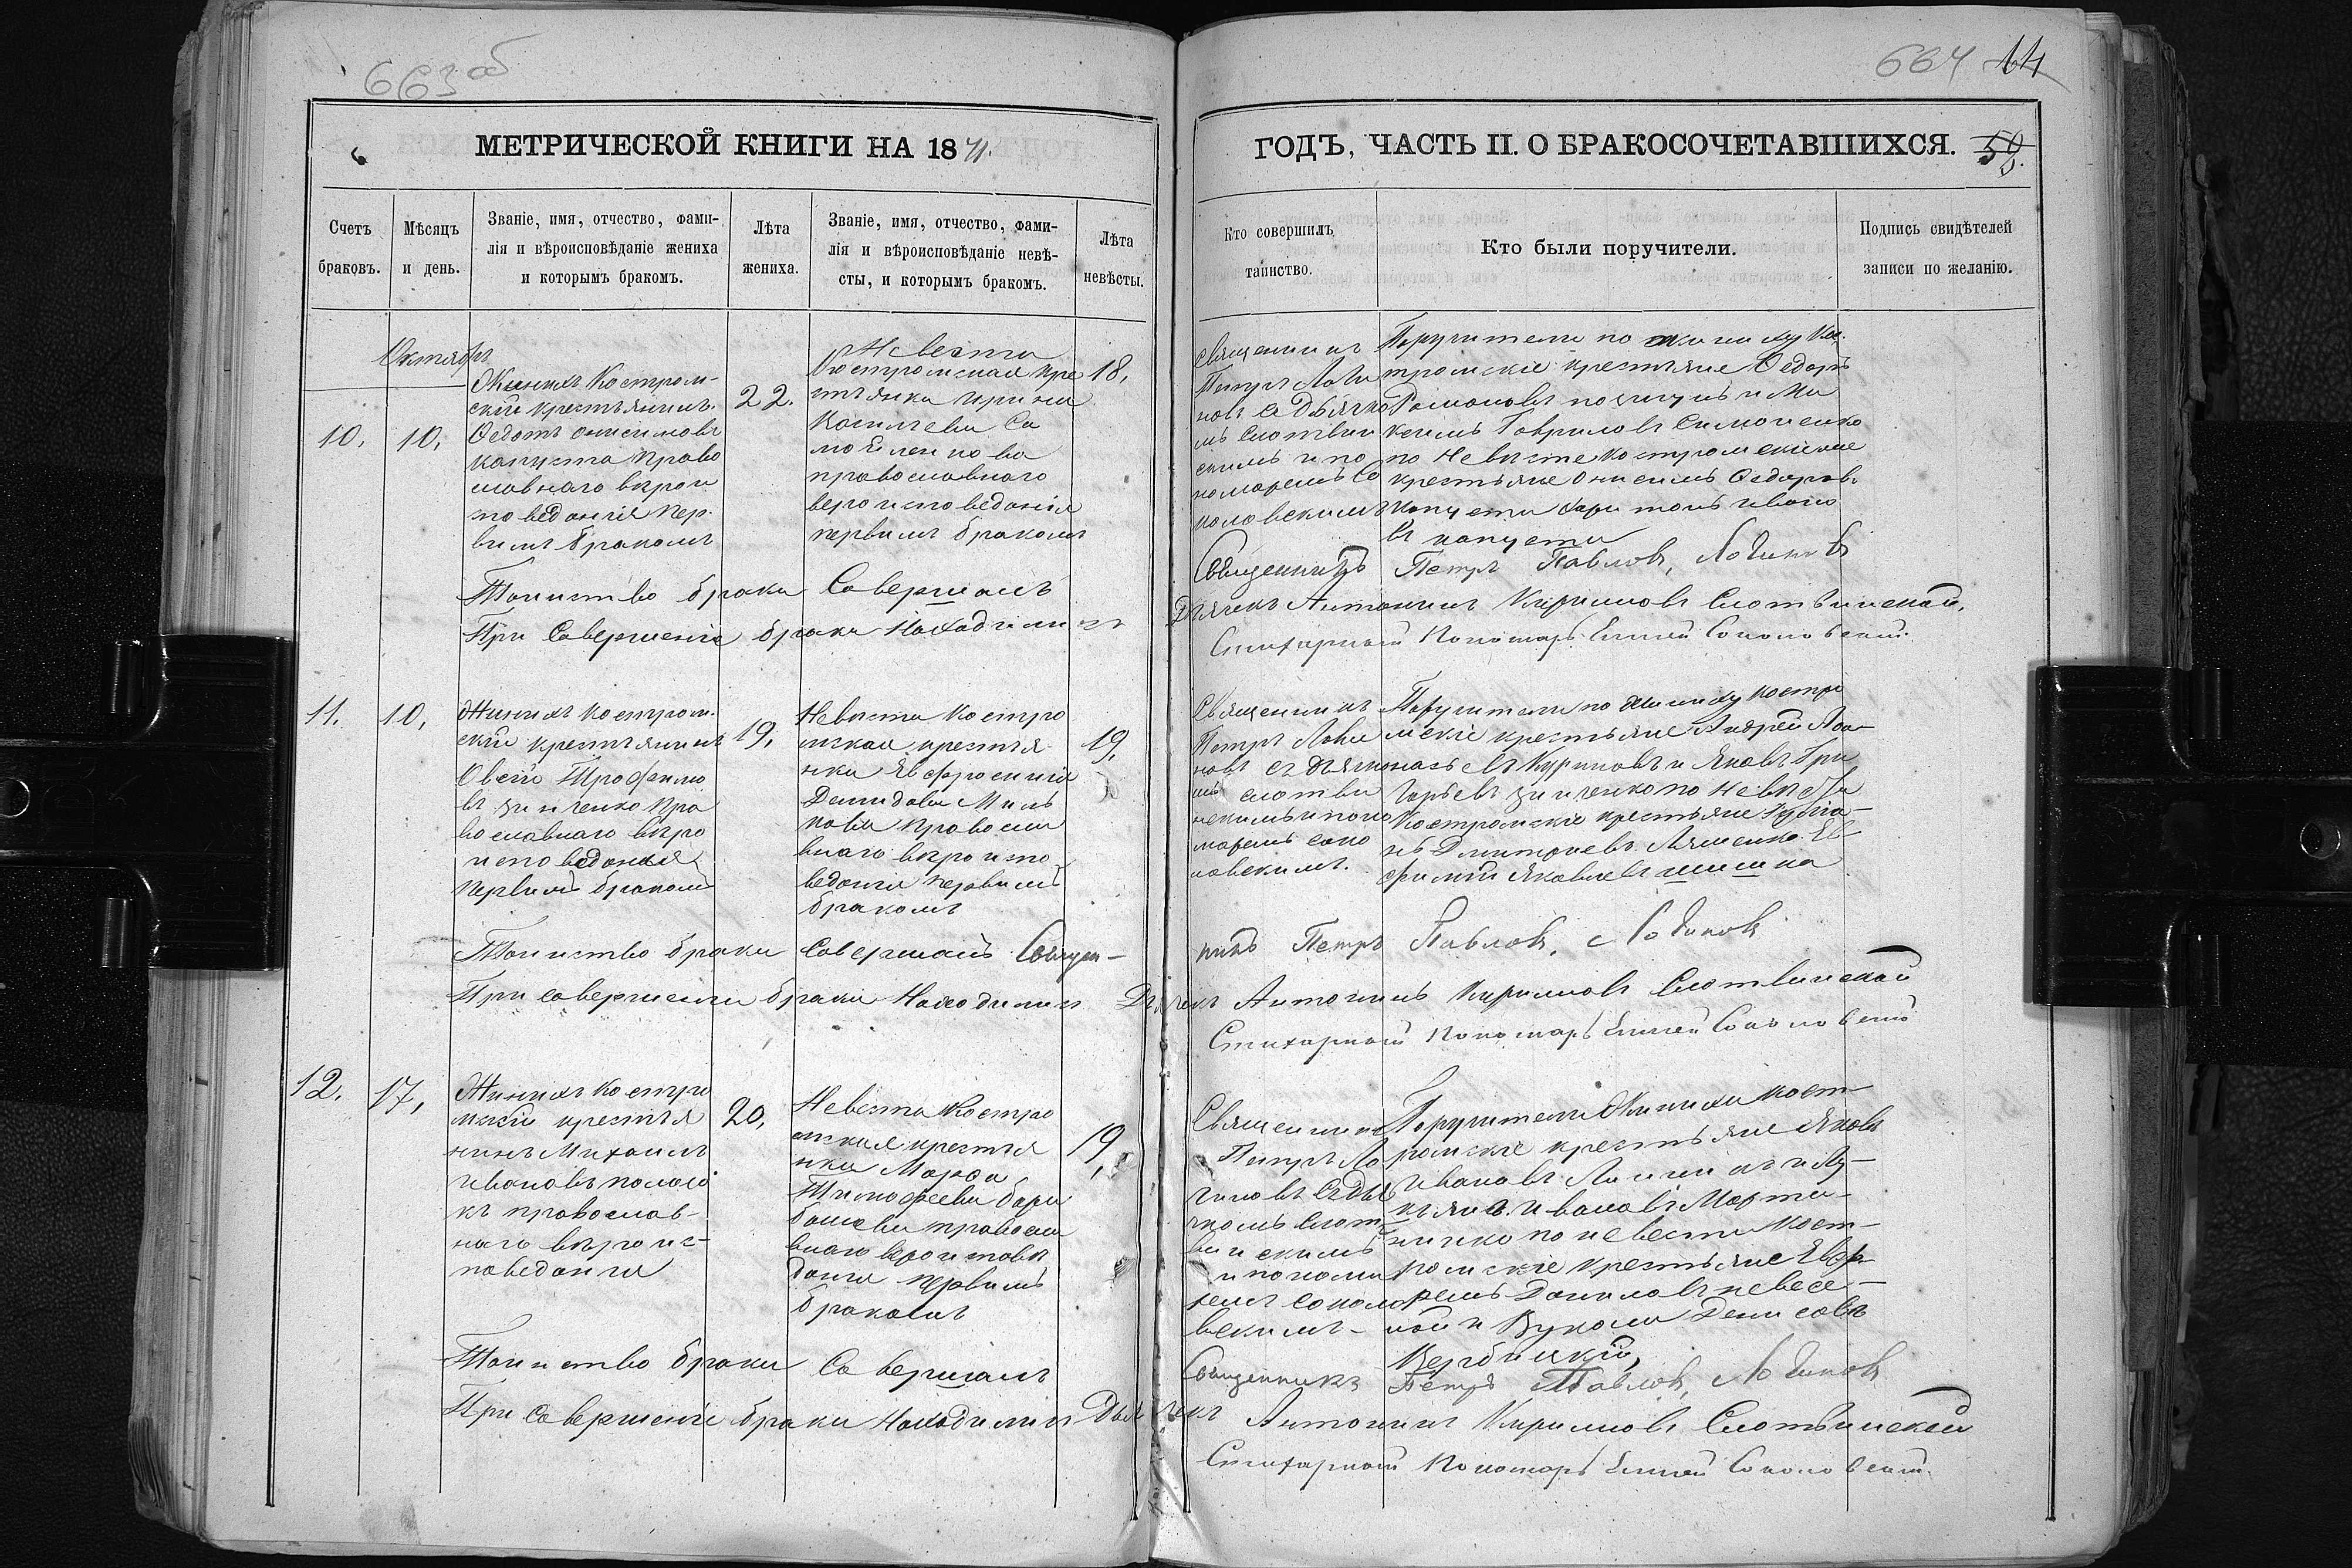 663 об
664 14
6 МЕТРИЧЕСКОЙ КНИГИ НА 1871.
ГОДЪ, ЧАСТЬ II. О БРАКОСОЧЕТАВШИХСЯ.
Счетъ
браковъ.
Мѣсяцъ
и день.
Званіе, имя, отчество, фами-
лія и вѣроисповѣданіе жениха
и которымъ бракомъ.
Лѣта
жениха.
Званіе, имя, отчество, фами-
лія и вѣроисповѣданіе невѣ-
сты, и которымъ бракомъ.
Лѣта
невѣсты.
Кто совершилъ
таинство.
Кто были поручители.
Подпись свидѣтелей
записи по желанію.
Октябрь
10.
10,
Жинихъ Костром-
скій крестьянинъ
Федотъ Онисимовъ
капуста право
славнаго вѣрои
споведанія пер-
вимъ бракомъ
22.
Невеста
Костромская кре
стьянка Ирина
Василева Са
мойленкова
православнаго
вероисповеданія
первимъ бракомъ
18,
Священникъ
Петръ Логи
новъ съ Дьячко
мъ Слотвин
скимъ и по
номаремъ Со
коловскимъ
Поручители по жиниху Ко
тромскіе крестьяне Федоръ
Романовъ и Ма
ксимъ Гавриловъ Симоненко
по Невѣсте костромскіеже
крестьяне Онисимъ Федоров
капуста Харитонъ Ивано
въ капуста
Таинство брака Совершалъ Священникъ Петръ Павловъ, Логиновъ
При Совершеніе брака Находились Дьячекъ Антонинъ Кириловъ Слотвинской,
Стихарный Пономарь Соколовскій.
11.
10,
Жинихъ Костром-
скій крестьянинъ
Овсій Трофимо
въ Зинченко Пра
вославнаго вѣро
исповеданія
Первимъ бракомъ
19,
Невѣста Костро
мская крестья
нка Евфросинія
Демидова Миль
кова Правосла
внаго вѣроиспо
веданія первимъ
бракомъ
19,
Священникъ
Петръ Логи
новъ съ дьячко
мъ слотви
нскимъ и поно
маремъ соко
ловскимъ.
Поручители по жиниху Костро
мскіе крестьяне Андрей Афа
насьевъ Куриновъ и Яковъ Гри
горьевъ Зинченко по Невѣсте
Костромскіе крестьяне
Дмитріевъ Ляшенко Ев
фимій Яковлевъ шишка
Таинство брака Совершалъ Священ-
никъ Петръ Павловъ, Логиновъ
При совершеніи брака Находились Дьячекъ Антонинъ Кириловъ Слотвинской
Стихарный Пономарь Соколовскій
12.
17,
Жинихъ Костро
мскій крестья
нинъ Михаилъ
Ивановъ
православ-
наго вѣроис-
поведанія
20,
Невеста Костро
мская крестья
нка Марфа
Тимофеева Бара
башева правосла
внаго вероисповѣ
данія первимъ
бракомъ
19,
Священникъ
Петръ Ло
гиновъ съ Дья
чкомъ Слот-
винскимъ
и понома
ремъ соколо
вскимъ-
Поручители Жиниха Кост-
ромскіе крестьяне Яковъ
Ивановъ и Лу-
кьянъ Ивановъ Марти-
ненко по невести Кост-
ромскіе крестьяне Ефр
ремъ Даниловъ невесе-
лой и Вукола Денисовъ
Вербицкій,
Таинство брака Совершалъ Священникъ Петръ Павловъ, Логиновъ
При Совершеніе брака Находились Дьячекъ Антонинъ Кириловъ Слотвинской
Стихарный Пономарь Соколовскій.